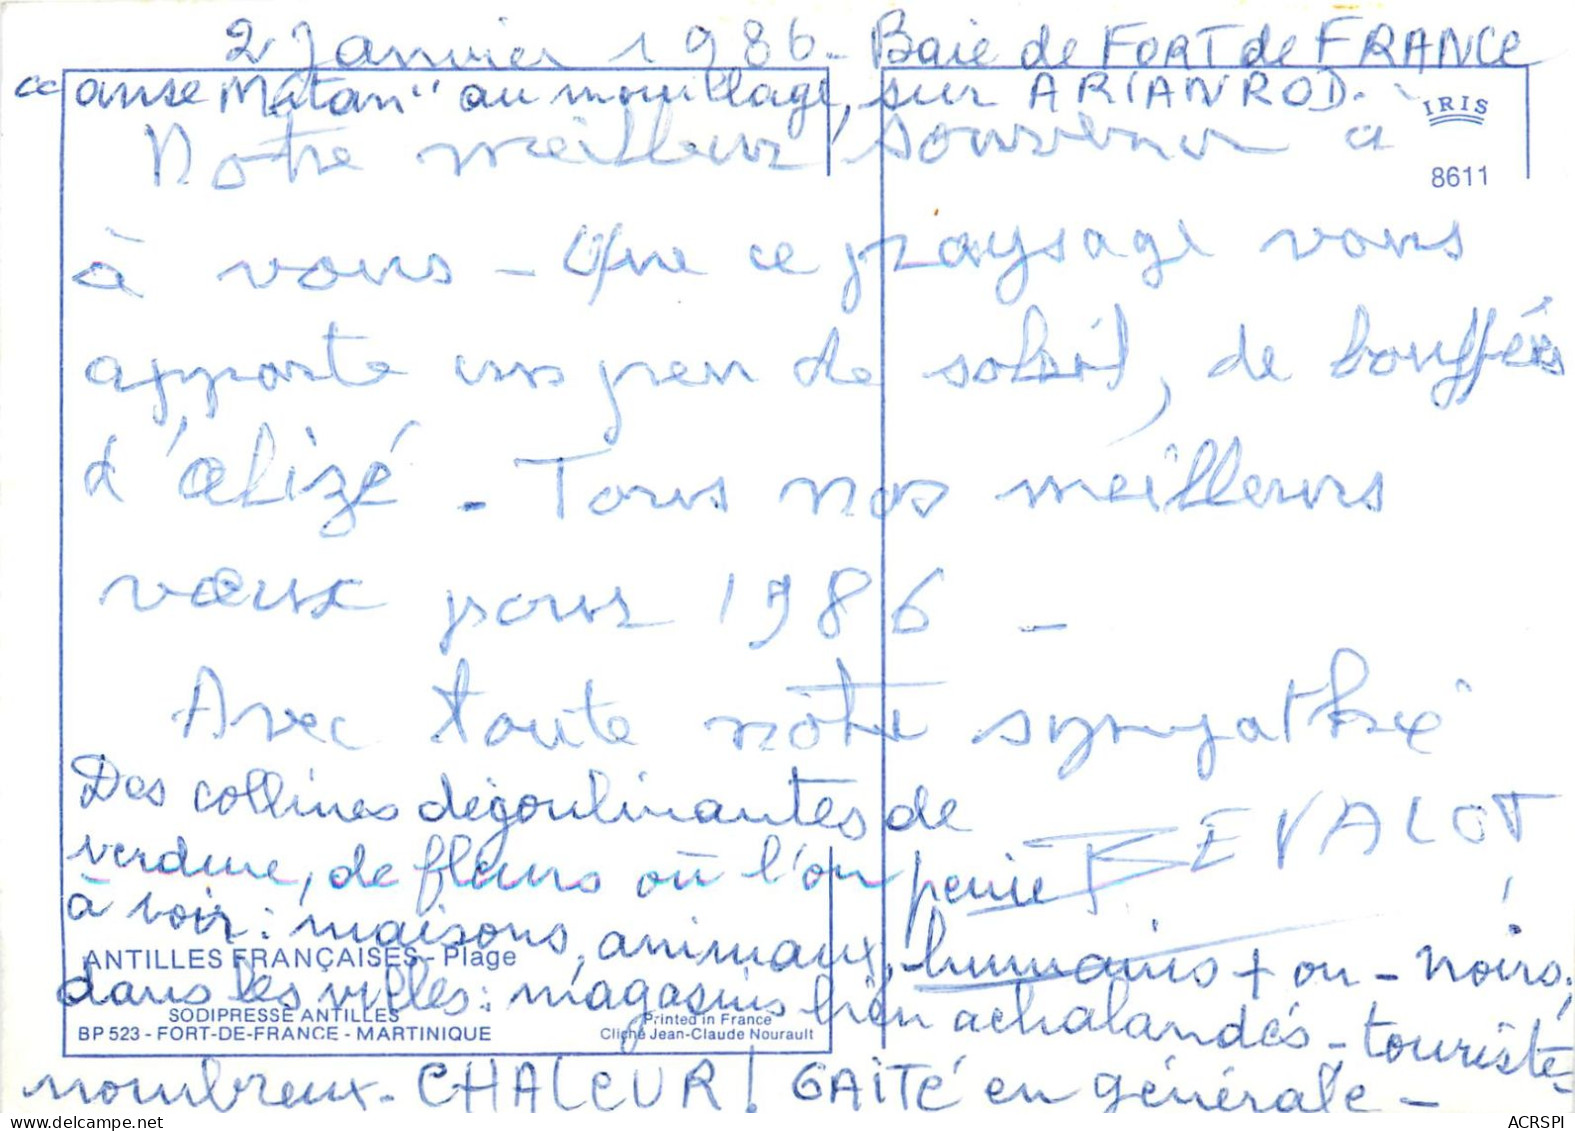 2 Janvier 1986 - Baie de FORT de FRANCE
"anse Mitan" au mouillage, sur ARIANROD.
IRIS
8611
Notre meilleur souvenir a
à vous - Que ce paysage vous
apporte un peu de soleil, de bouffées
d'alizé - Tous nos meilleurs
vœux pour 1986 -
Avec toute nôtre sympathie
BEVALOT
Des collines dégoulinantes de
verdure, de fleurs où l'on peine
à voir : maisons, animaux, humains + ou - noirs,
dans les villes : magasins bien achalandés - touristes
nombreux - CHALEUR ! GAITÉ en générale -
ANTILLES FRANÇAISES - Plage
SODIPRESSE ANTILLES
BP 523 - FORT-DE-FRANCE - MARTINIQUE
Printed in France
Cliché Jean-Claude Nourault
ACRSPI